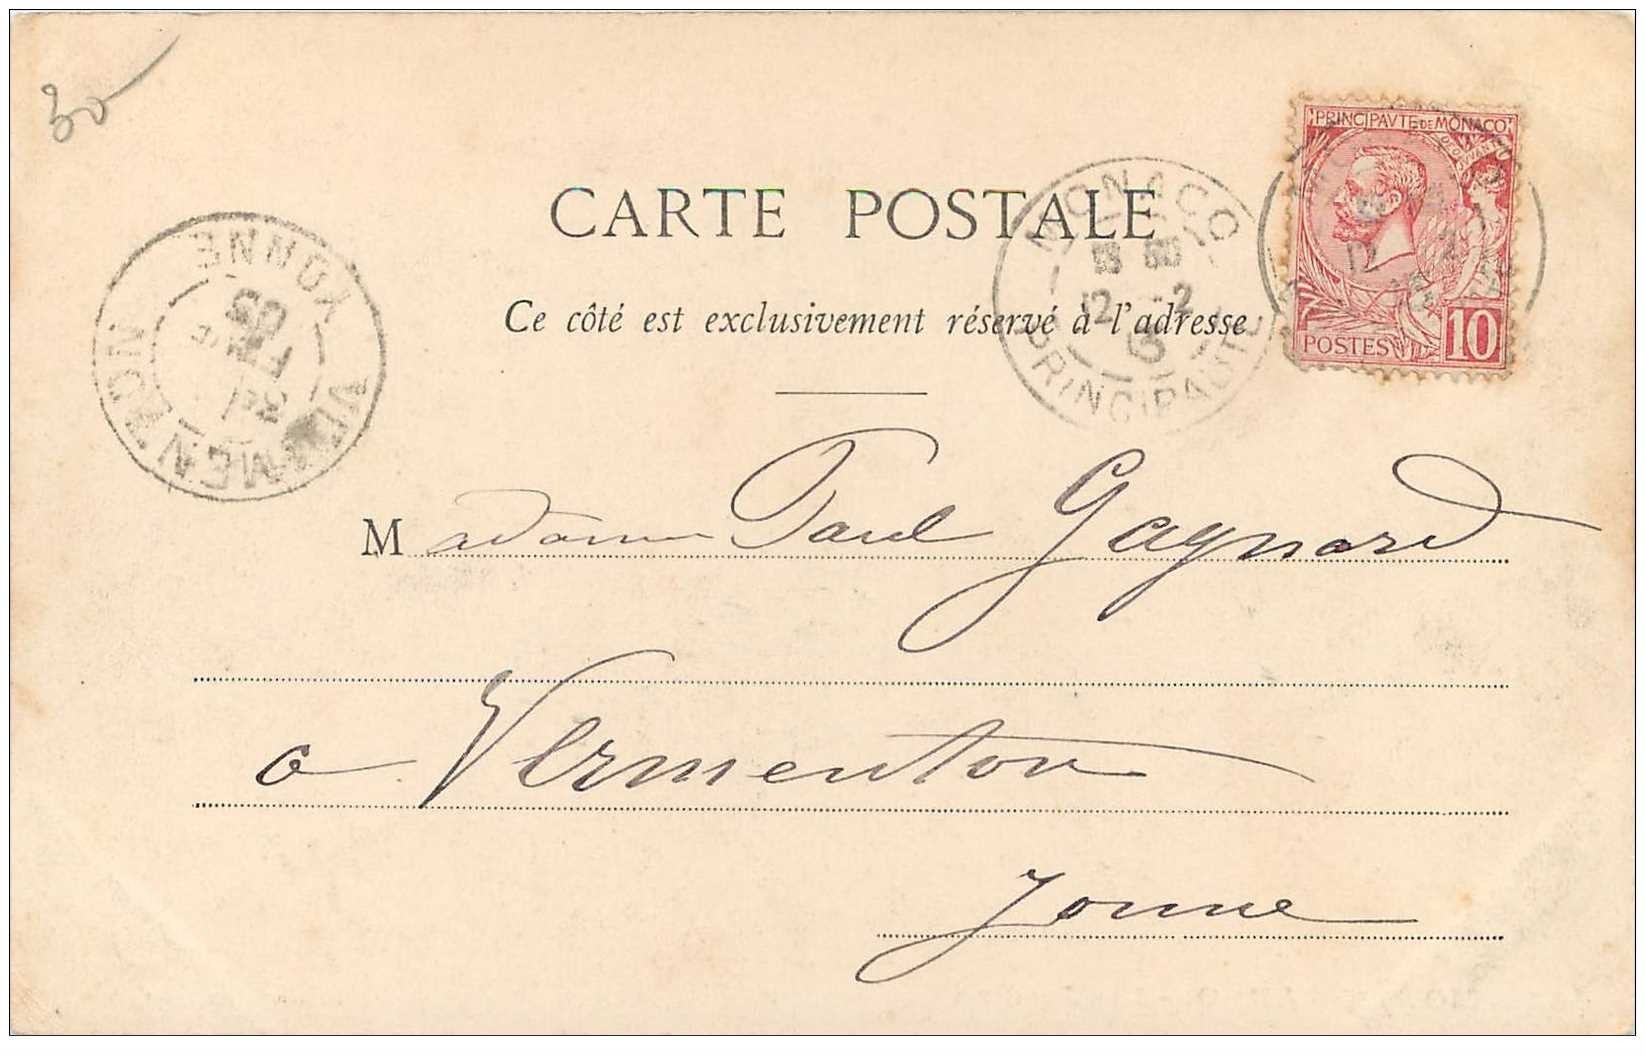 30
CARTE POSTALE
Ce côté est exclusivement réservé à l'adresse
PRINCIPAVTÉ DE MONACO
POSTES 10
MONACO
12 - 2
PRINCIPAUTÉ
VERMENTON
YONNE
Madame Paul Gagnard
à Vermenton
Yonne